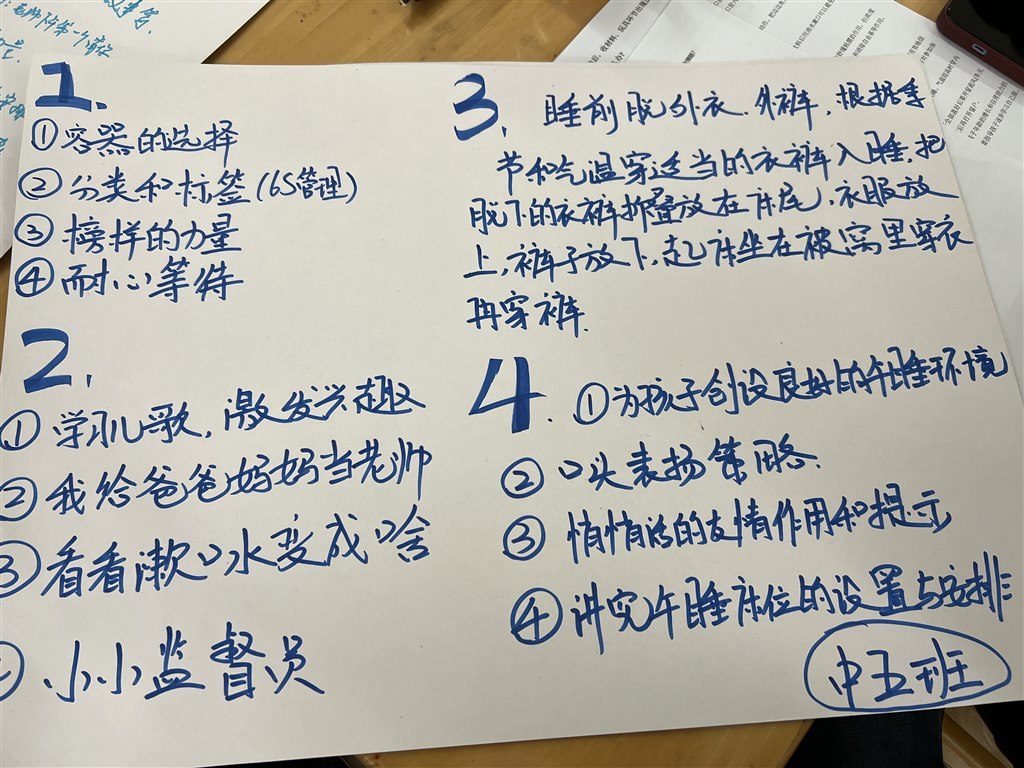 1.
①容器的选择
②分类和标签(6S管理)
③榜样的力量
④耐心等待
2.
①学习儿歌,激发兴趣
②我给爸爸妈妈当老师
③看看漱口水变成啥
小小监督员
3.睡前脱外衣、外裤,根据季
节和气温穿适当的衣裤入睡,把
脱下的衣裤折叠放在床尾,衣服放
上,裤子放下,起床坐在被窝里穿衣
再穿裤.
4.①为孩子创设良好的午睡环境
②口头表扬策略.
③悄悄话的友情作用和提示
④讲究午睡床位的设置与安排
中五班